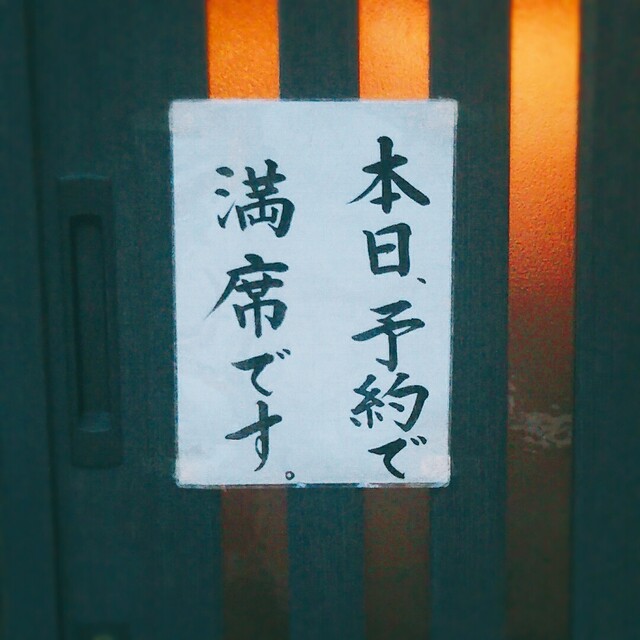 本日、予約で
満席です。